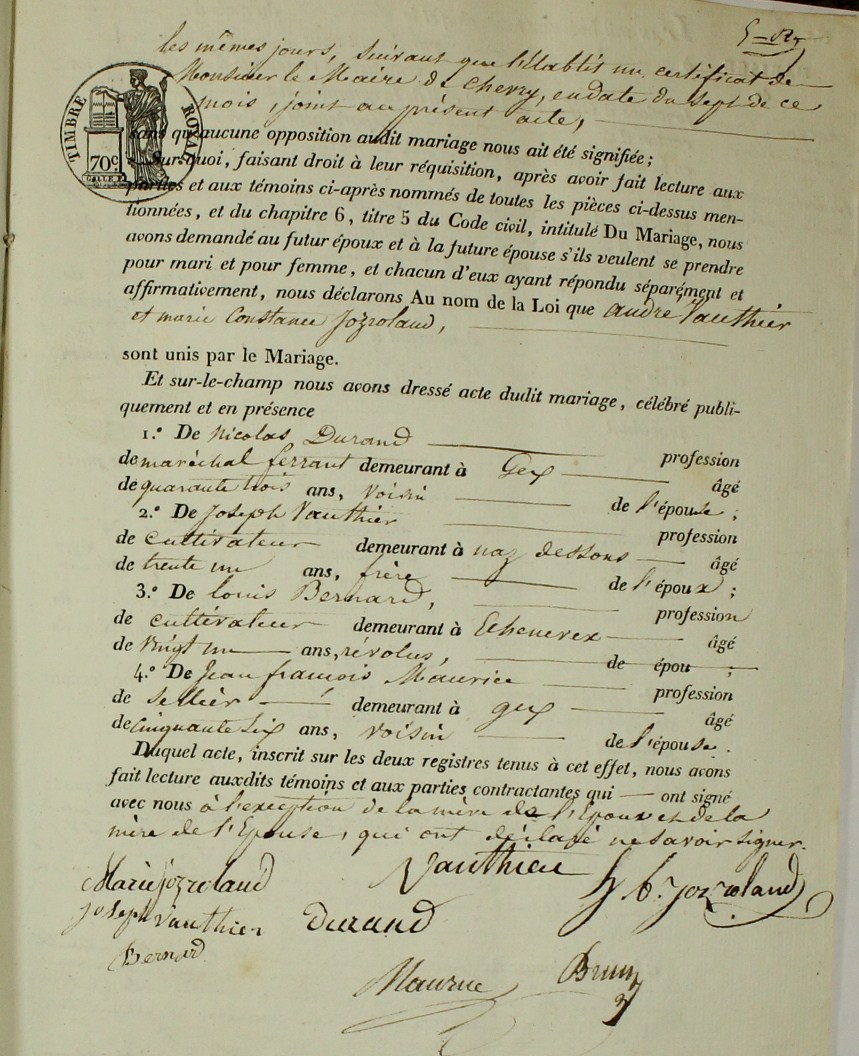 les mêmes jours, suivant que l'établit un certificat de
Monsieur le Maire de Chevry, en date du sept de ce
mois, joint au présent acte,
TIMBRE ROYAL
70c
sans qu'aucune opposition audit mariage nous ait été signifiée;
Sur quoi, faisant droit à leur réquisition, après avoir fait lecture aux
parties et aux témoins ci-après nommés de toutes les pièces ci-dessus men-
tionnées, et du chapitre 6, titre 5 du Code civil, intitulé Du Mariage, nous
avons demandé au futur époux et à la future épouse s'ils veulent se prendre
pour mari et pour femme, et chacun d'eux ayant répondu séparément et
affirmativement, nous déclarons Au nom de la Loi que andré Vauthier
et marie Constance Jozroland,
sont unis par le Mariage.
Et sur-le-champ nous avons dressé acte dudit mariage, célébré publi-
quement et en présence
1.º De Nicolas Durand profession
de maréchal ferrant demeurant à Gex âgé
de quarante trois ans, voisin de l'épouse;
2.º De Joseph Vauthier profession
de cultivateur demeurant à naz dessous âgé
de trente un ans, frère de l'époux;
3.º De louis Bernard, profession
de cultivateur demeurant à Echenevex âgé
de vingt un ans, révolus, de épou ;
4.º De Jean françois Maurice profession
de sellier demeurant à gex âgé
de cinquante six ans, voisin de l'épouse.
Duquel acte, inscrit sur les deux registres tenus à cet effet, nous avons
fait lecture auxdits témoins et aux parties contractantes qui ont signé
avec nous à l'exception de la mère de l'Epoux et de la
mère de l'Epouse, qui ont déclaré ne savoir signer.
Marie jozroland Vauthier jozroland
joseph Vauthier Durand
Bernard
Maurice Brun